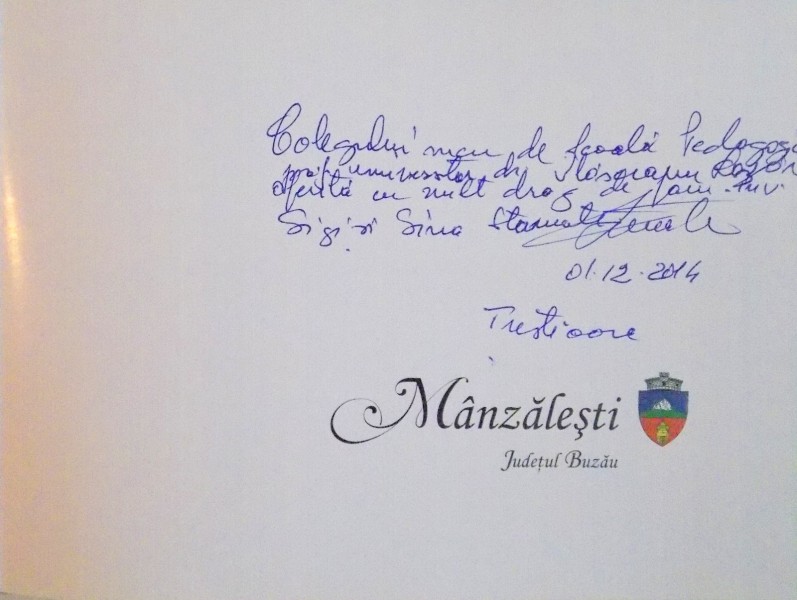 Colegului meu de Școală Pedagogi
prof. universitar dr.
oferită cu mult drag de fam. înv.
Gigi și Gina Stamate
01.12.2014
Trestioare
Mânzălești
Județul Buzău